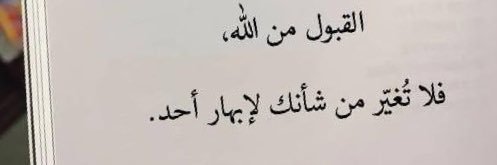 القبول من الله،
فلا تُغيّر من شأنك لإبهار أحد.